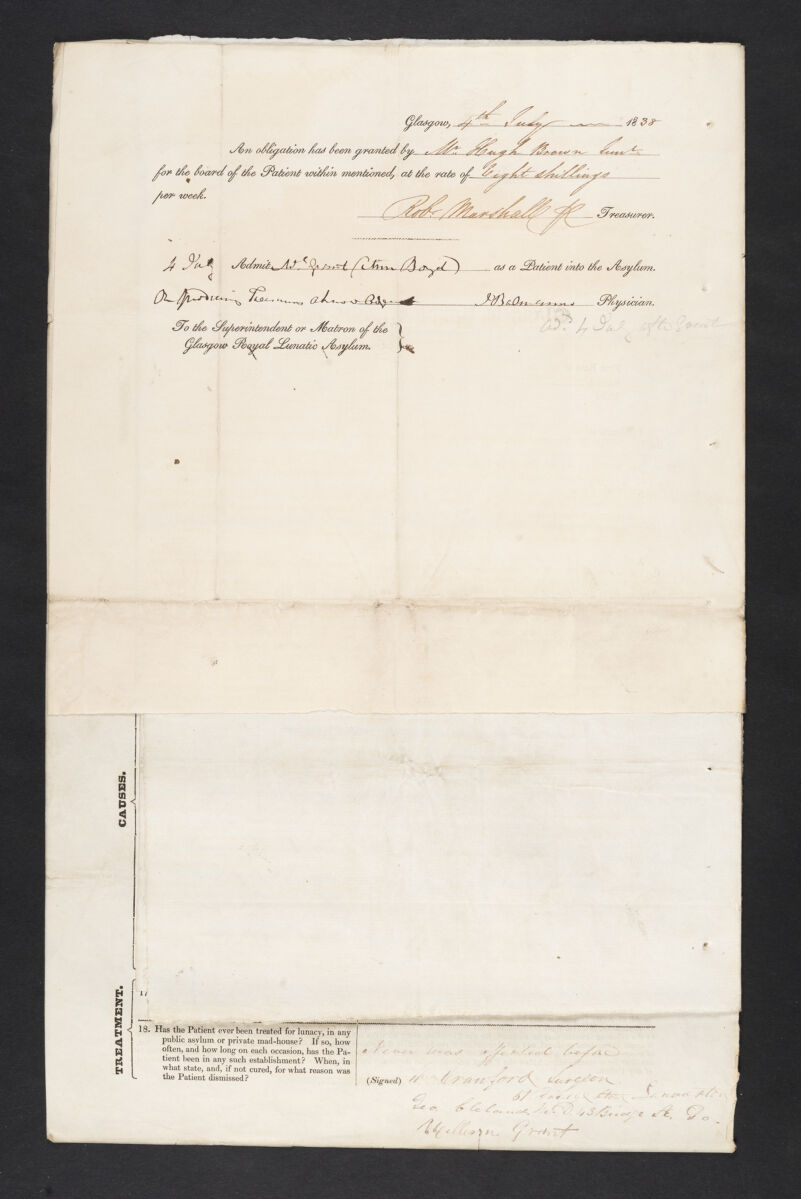 Glasgow, 4th July 1838
An obligation has been granted by Mr Hugh Brown
for the board of the Patient within mentioned, at the rate of Eight shillings
per week.
Rob Marshall Treasurer.
4 July Admit Grant (Ann Boyd) as a Patient into the Asylum.
On producing above Physician.
4 July Grant
To the Superintendent or Matron of the
Glasgow Royal Lunatic Asylum.
CAUSES.
TREATMENT.
17
18. Has the Patient ever been treated for lunacy, in any
public asylum or private mad-house? If so, how
often, and how long on each occasion, has the Pa-
tient been in any such establishment? When, in
what state, and, if not cured, for what reason was
the Patient dismissed?
Never was affected before
(Signed) Cranford Surgeon
51
Geo. Cleland 43 Bridge St. Do.
William Grant